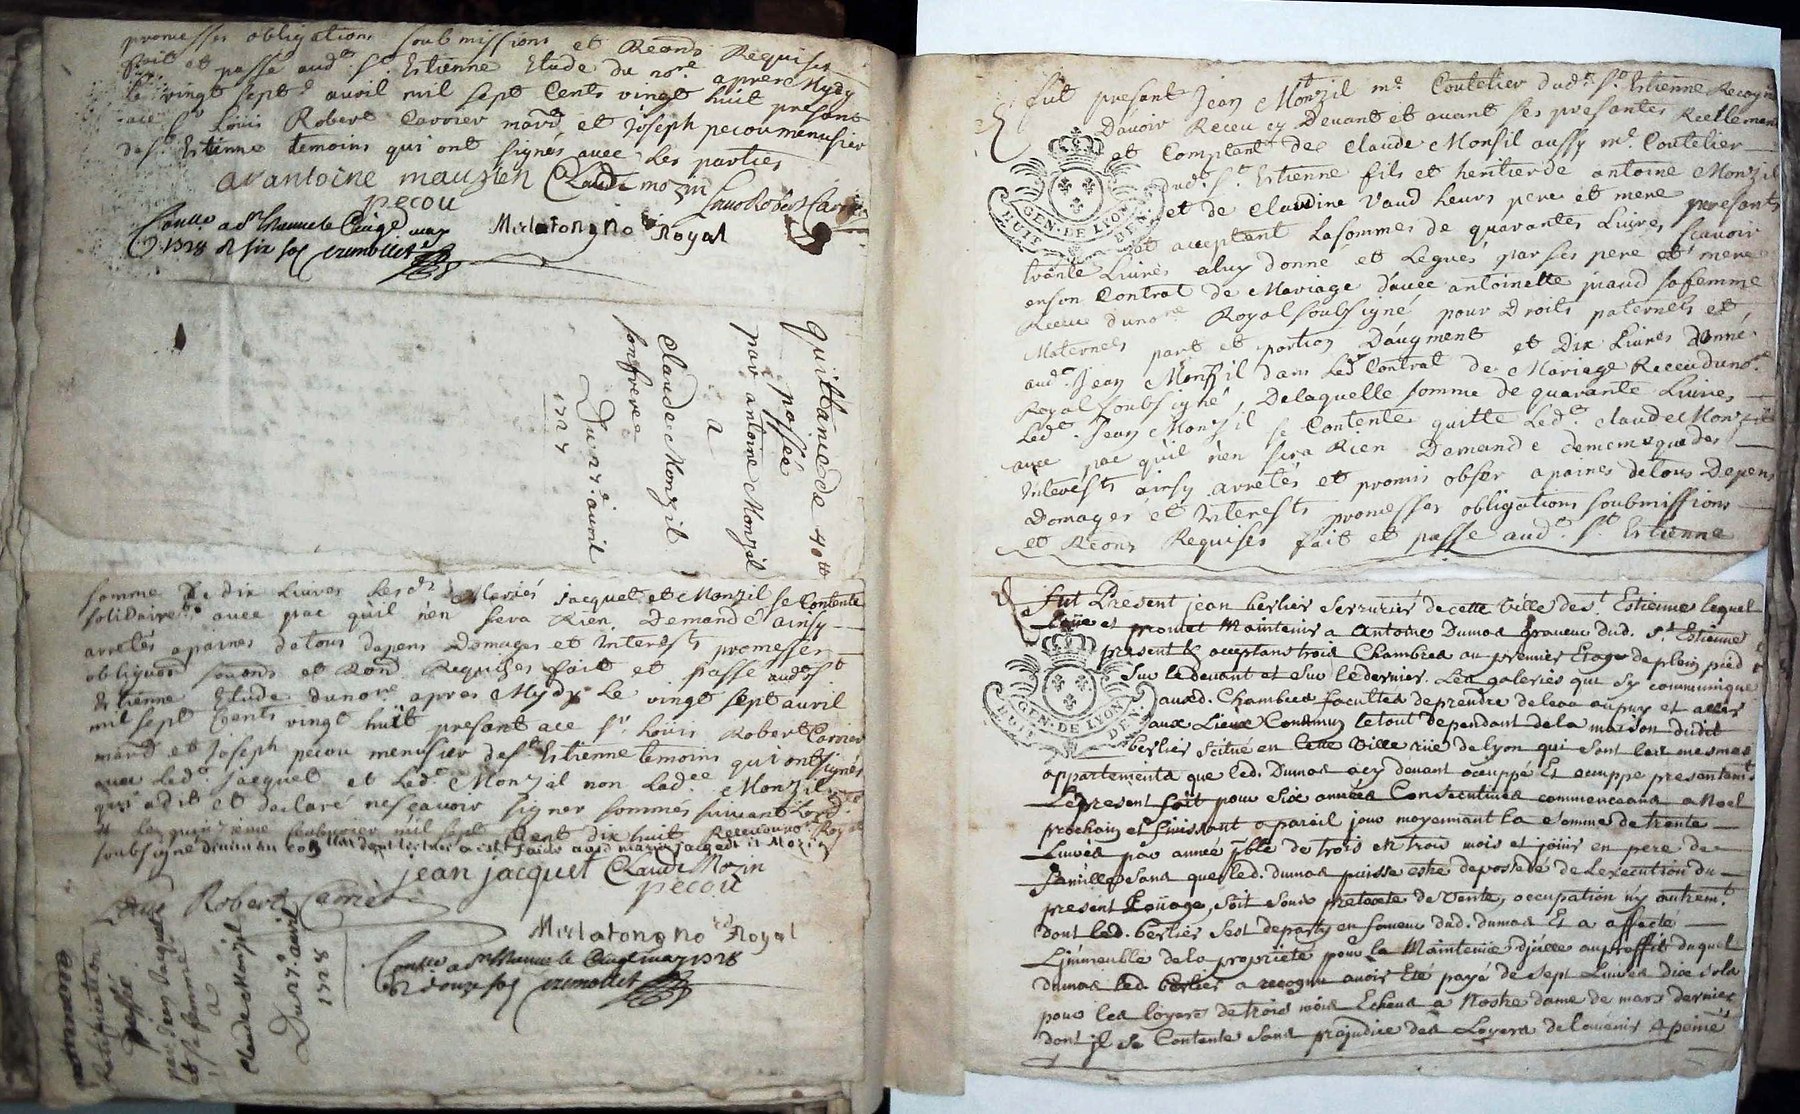 promesses obligations soubmissions et Reons Requises
fait et passé audt. St. Estienne Etude du nore apres Mydy
le vingt septe avoil mil sept Cents vingt huit presant
Louis Robert Carrier mard et Joseph pecou menusier
de St Estienne temoins qui ont signés avec les parties
antoine mauzien Claude mozin
pecou
Royal
1728
quittance de 40 tt
passée
par antoine Monzil
a
Claude Monzil
son frere
Du 27e. avril
1728
somme de dix livres lesds Mariés Jacquet et Monzil se Contente
solidairet. avec pac quil n'en sera Rien Demandé ainsy
arretés apaines de tous depens Domages et Interests promesses
obligaons et Reons Requises fait et passé audt St
Estienne Etude du nore apres Mydy Le vingt sept avril
mil sept Cents vingt huit presant Sr. Louis Robert Carrier
mard et Joseph pecou menusier de St Estienne temoins qui ont signés
avec Ledt. Jacquet et Ledt. Monzil non Ladee Monzil
qui a dit et declaré ne scavoir signer sommes
mil sept Cent dix huit
soubsigné
jean jacquet Claude Mozin
pecou
Robert Carrier
Royal
1728
Ratification
passé
par Jean Jacquet
et sa femme
a
Claude Monzil
Du 27e. avril
1728
fut presant Jean Monzil me. Coutelier dudt. St. Estienne
Davoir Receu cy Devant et avant ses presantes Reellement
et Comptant de Claude Monsil aussy me. Coutelier
dudt. St. Estienne fils et heritier de antoine Monzil
et de Claudine Vaud leurs pere et mere presants
et acceptant la somme de quarantes Livres, scavoir
trante Livres a luy donné et Legués par ses pere et mere
en son Contrat de Mariage d'avec antoinette piaud sa femme
Receu du nore Royal soubsigné pour Droits paternels et
Maternels part et portion D'augment et Dix Livres donné
audt. Jean Monzil dans Ledt Contrat de Mariage Receu du nore
Royal soubsigné, De laquelle somme de quarante Livres
Ledt. Jean Monzil se Contente quitte Ledt. Claude Monzil
avec pac quil n'en sera Rien Demandé
Interests ainsy arretés et promis obser apaines de tous Depens
Domages et Interests promesses obligations soubmissions
et Reons Requises fait et passé audt. St. Estienne
GEN. DE LYON
HUIT DEN.
fut Present jean berlier serrurier de cette Ville de St. Estienne lequel
Loüe et promet Maintenir a Antoine Dumas graveur dud. St Estienne
present & acceptant trois Chambres au premier Etage de plein pied
sur le devant et sur le dernier. Les galeries qui sy communique
auxd. Chambres faculté de prendre de leau au puy et aller
aux Lieux Communs le tout dependant de la maison dudit
berlier scitué en Cette Ville rüe de lyon qui sont les mesmes
appartements que led. Dumas a cy devant occuppé Et occuppe presentemt
Le present fait pour six années Consecutives commenceans a Noel
prochain et finissant a pareil jour moyennant la somme de trente
Livres par année pble de trois en trois mois et jouir en pere de
famille sans que led. Dumas puisse estre deposcédé de Lexecution du
present Loüage, soit sous pretexte de Vente, occupation ny autremt.
Dont led. berlier sest departy en faveur dud. dumas Et a affecté
Limmeuble de la propriété pour la Maintenüe au proffit duquel
Dumas led. berlier a recognu avoir Eté payé de sept Livres dix sols
pour les loyers de trois mois Echeus a Nostre dame de mars dernier
dont il se Contente sans prejudice des Loyers de lavenir a peine
GEN. DE LYON
HUIT DEN.